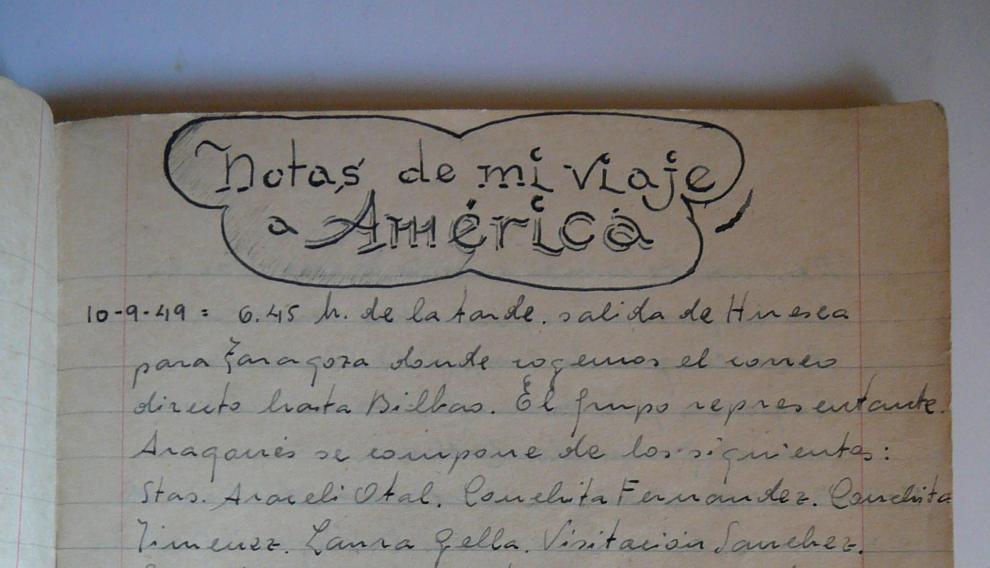 Notas de mi viaje
a América
10-9-49 = 6.45 h. de la tarde. salida de Huesca
para Zaragoza donde cogemos el correo
directo hasta Bilbao. El grupo representante.
Aragonés se compone de los siguientes:
Stas. Araceli Otal. Conchita Fernandez. Conchita
Jimenez. Laura Gella. Visitación Sanchez.